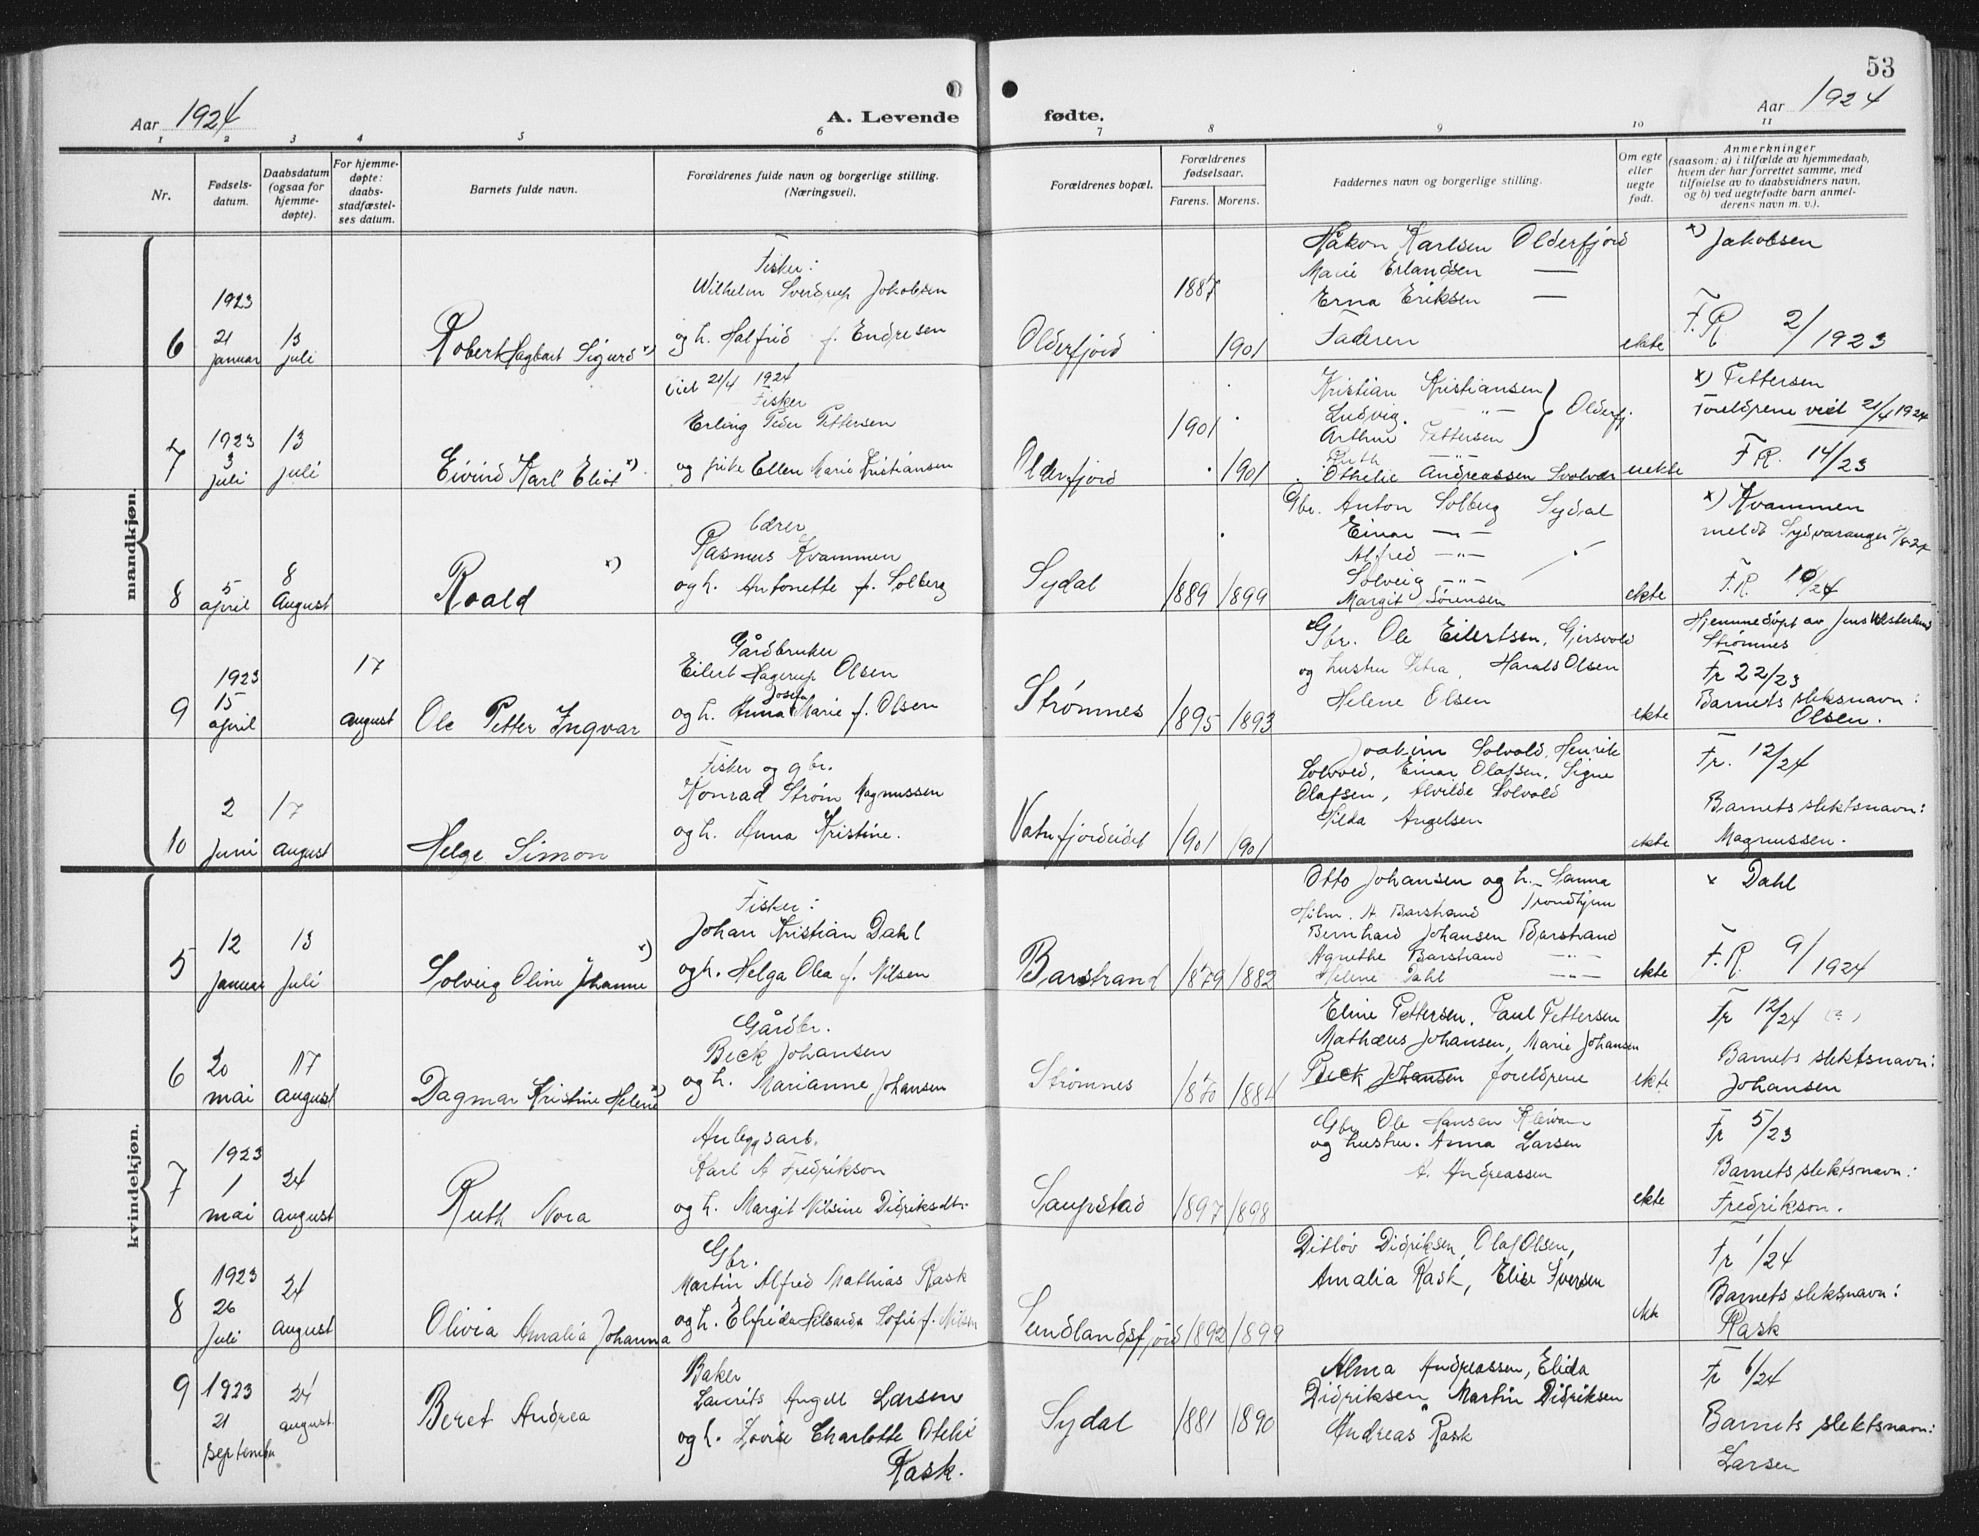 53
Aar 1924
A. Levende
fødte.
Aar 1924
1 2 3 4 5 6 7 8 9 10 11
Nr.
Fødsels-
datum.
Daabsdatum
(ogsaa for
hjemme-
døpte).
For hjemme-
døpte:
daabs-
stadfæstel-
ses datum.
Barnets fulde navn.
Forældrenes fulde navn og borgerlige stilling.
(Næringsvei).
Forældrenes bopæl.
Forældrenes
fødselsaar.
Farens. Morens.
Faddernes navn og borgerlige stilling.
Om egte
eller
uegte
født.
Anmerkninger
(saasom: a) i tilfælde av hjemmedaab,
hvem der har forrettet samme, med
tilføielse av to daabsvidners navn,
og b) ved uegtefødte barn anmel-
derens navn m. v.).
mandkjøn.
6
1923
21
januar
13
juli
Robert Hagbart Sigurd x)
Fisker:
Wilhelm Sverdrup Jakobsen
og h. Halfrid f. Endresen
Olderfjord
1887
1901
Håkon Karlsen Olderfjord
Marie Erlandsen —
Erna Eriksen —
Faderen
ekte
x) Jakobsen
F.R. 2/1923
7
1923
3
juli
13
juli
Eivind Karl Eliot x)
viet 21/4 1924
Fisker
Erling Peder Pettersen
og pike Ellen Marie Kristiansen
Olderfjord
1901
1901
Kristian Kristiansen
Ludvig —"—
Arthur Pettersen
Olderfj.
Ruth —"—
Othelie Andreassen Svolvær
uekte
x) Pettersen
Foreldrene viet 21/4 1924
F.R. 14/23
8
5
april
8
August
Roald x)
Lærer
Rasmus Kvammen
og h. Antonette f. Solberg
Sydal
1889
1899
Gbr. Anton Solberg Sydal
Einar —"—
Alfred —"—
Solveig —"—
Margit Sørensen
ekte
x) Kvammen
meldt Sydvaranger
F.R. 10/24
9
1923
15
april
17
august
Ole Petter Ingvar
Gårdbruker
Eilert Hagerup Olsen
Josefa
og h. Anna Marie f. Olsen
Strømnes
1895
1893
Gbr. Ole Eilertsen, Gjersvold
og hustru Petra, Harald Olsen
Helene Olsen
ekte
Hjemmedøpt av Jens Westerlund
Strømnes
Fr 22/23
Barnets slektsnavn:
Olsen.
10
2
juni
17
august
Helge Simon
Fisker og gbr.
Konrad Strøm Magnussen
og h. Anna Kristine.
Vatnfjordeidet
1901
1901
Joakim Solvold, Henrik
Solvold, Einar Olafsen, Signe
Olafsen, Alvilde Solvold
Hilda Angelsen
ekte
Fr. 12/24
Barnets slektsnavn:
Magnussen.
kvindekjøn.
5
12
januar
13
juli
Solveig Oline Johanne x)
Fisker:
Johan Kristian Dahl
og h. Helga Olea f. Nilsen
Barstrand
1879
1882
Otto Johansen og h. Sanna
Hilm. A Barstrand Trondhjem
Bernhard Johansen Barstrand
Agnethe Barstrand —"—
Helene Dahl —"—
ekte
x Dahl
F.R. 9/1924
6
20
mai
17
august
Dagmar Kristine Helene x)
Gårdbr.
Beck Johansen
og h. Marianne Johansen
Strømnes
1870
1884
Eline Pettersen, Paul Pettersen
Mathæus Johansen, Marie Johansen
Beck Johansen foreldrene
ekte
Fr 12/24
Barnets slektsnavn:
Johansen
7
1923
1
mai
24
august
Ruth Nora
Anleggsarb.
Karl A Fredrikson
og h. Margit Nilsine Didriksdtr.
Saupstad
1897
1898
Gbr Ole Hansen Kleivan
og hustru. Anna Larsen
A. Andreassen
ekte
Fr 5/23
Barnets slektsnavn:
Fredrikson.
8
1923
26
juli
24
august
Olivia Amalia Johanna
Gbr.
Martin Alfred Mathias Rask
og h. Elfrida Hilsarda Sofie f. Nilsen
Sundlandsfjord
1892
1899
Ditlov Didriksen, Olaf Olsen,
Amalia Rask, Elise Iversen
ekte
Fr 1/24
Barnets slektsnavn:
Rask
9
1923
21
september
24
august
Beret Andrea
Baker
Laurits Angell Larsen
og h. Lovise Charlotte Otelie
Rask.
Sydal
1881
1890
Alma Andreassen, Elida
Didriksen, Martin Didriksen
Andreas Rask
Fr 6/24
Barnets slektsnavn:
Larsen